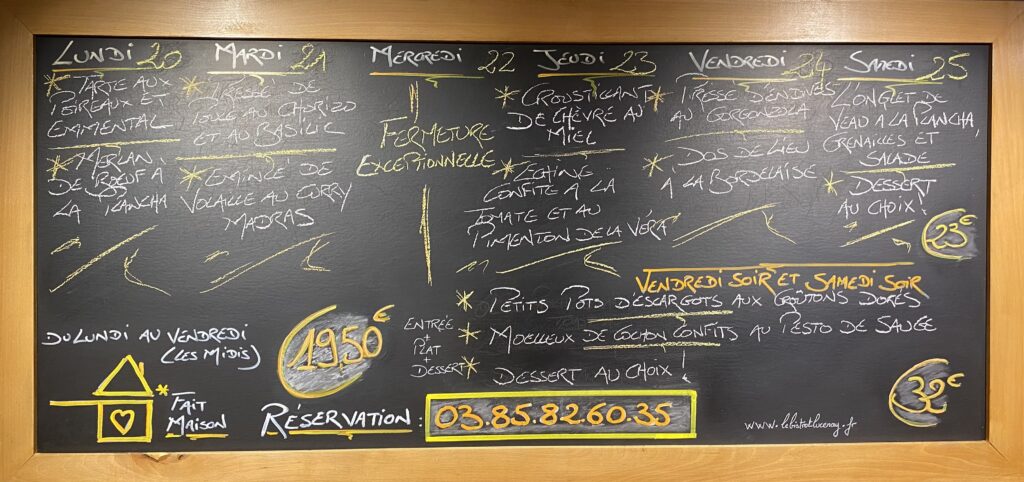 LUNDI 20
* TARTE AUX
POIREAUX ET
EMMENTAL
* MERLAN
DE BŒUF A
LA PLANCHA
MARDI 21
* TIRESSE DE
TOULE AU CHORIZO
ET AU BASILIC
* EMINCÉ DE
VOLAILLE AU CURRY
MADRAS
MERCREDI 22
FERMETURE
EXCEPTIONNELLE
JEUDI 23
* CROUSTILLANT
DE CHÈVRE AU
MIEL
* ECHINE
CONFITE A LA
TOMATE ET AU
PIMENTON DE LA VÉRA
VENDREDI 24
* TIRESSE D'ENDIVES
AU GORGONZOLA
* DOS DE LIEU
À LA BORDELAISE
SAMEDI 25
L'ONGLET DE
VEAU A LA PLANCHA,
GRENAILLES ET
SALADE
* DESSERT
AU CHOIX!
23€
VENDREDI SOIR ET SAMEDI SOIR
* PETITS POTS D'ESCARGOTS AUX CROUTONS DORÉS
* MOELLEUX DE COCHON CONFITS AU PESTO DE SAUGE
* DESSERT AU CHOIX!
32€
DU LUNDI AU VENDREDI
(LES MIDIS)
19,50€
ENTRÉE
+
PLAT
+
DESSERT
* FAIT
MAISON
RÉSERVATION: 03.85.82.60.35
www.lebistrotlucenay.fr